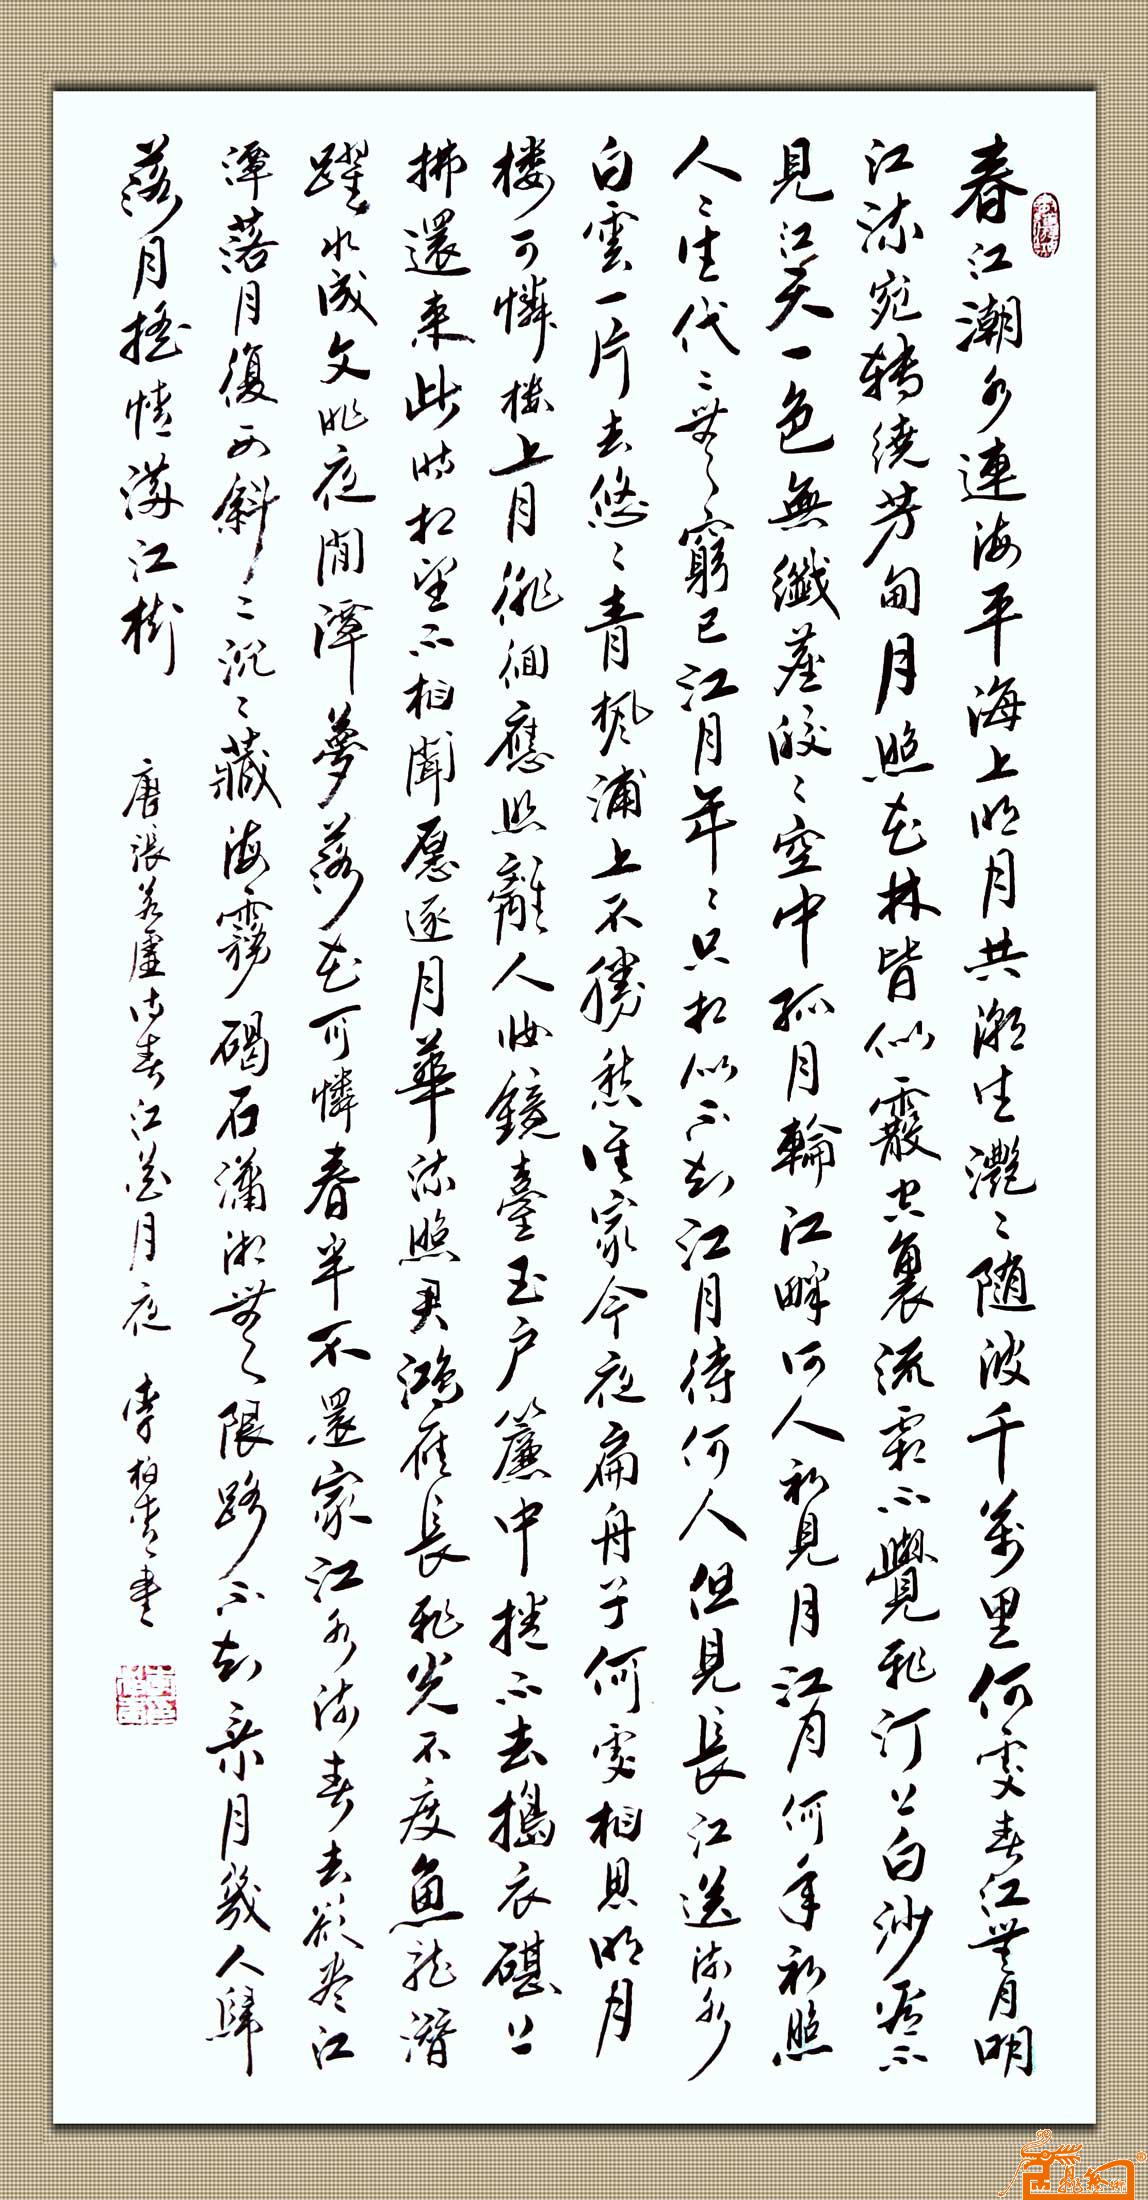 春江潮水連海平海上明月共潮生灔〻随波千萬里何處春江無月明
江流宛轉繞芳甸月照花林皆似霰空裏流霜不覺飛汀上白沙看不
見江天一色無纖塵皎〻空中孤月輪江畔何人初見月江月何年初照
人〻生代〻無窮已江月年〻只相似不知江月待何人但見長江送流水
白雲一片去悠〻青楓浦上不勝愁誰家今夜扁舟子何處相思明月
樓可憐樓上月徘徊應照離人妝鏡臺玉户簾中捲不去搗衣砧上
拂還來此時相望不相聞愿逐月華流照君鴻雁長飛光不度魚龍潛
躍水成文昨夜閒潭夢落花可憐春半不還家江水流春去欲盡江
潭落月復西斜〻〻沉〻藏海霧碣石瀟湘無限路不知乘月幾人歸
落月搖情滿江樹
唐張若虛詩春江花月夜 李柏青書